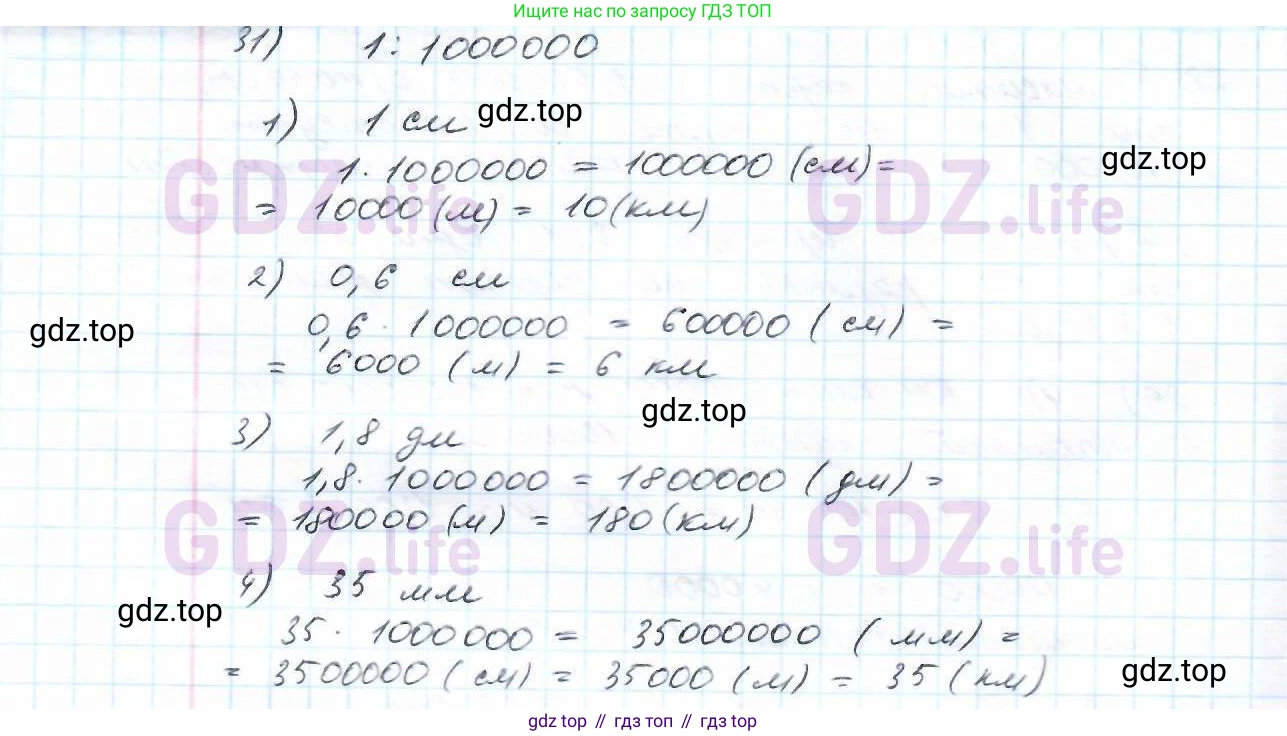 Ищите нас по запросу ГДЗ ТОП
31) 1 : 1000000
1) 1 см
gdz.top
1 · 1000000 = 1000000 (см) =
gdz.top
= 10000 (м) = 10 (км)
GDZ.life
GDZ.life
2) 0,6 см
0,6 · 1000000 = 600000 (см) =
gdz.top
= 6000 (м) = 6 км
gdz.top
3) 1,8 дм
1,8 · 1000000 = 1800000 (дм) =
= 180000 (м) = 180 (км)
GDZ.life
GDZ.life
4) 35 мм
gdz.top
35 · 1000000 = 35000000 (мм) =
= 3500000 (см) = 35000 (м) = 35 (км)
gdz.top
gdz top // гдз топ // gdz top